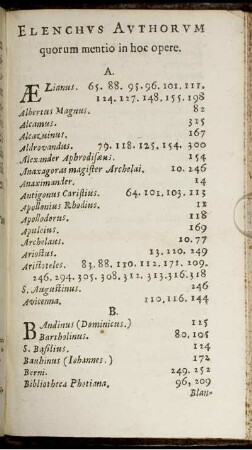 ELENCHVS AVTHORVM
quorum mentio in hoc opere.
A.
ÆLianus. 65. 88. 95. 96. 101. 111.
124. 127. 148. 155. 198
Albertus Magnus. 82
Alcamus. 315
Alcazuinus. 167
Aldrovandus. 79. 118. 125. 154. 300
Alexander Aphrodisæus. 154
Anaxagoras magister Archelai. 10. 246
Anaximander. 14
Antigonus Caristius. 64. 101. 103. 113
Apollonius Rhodius. 12
Apollodorus. 118
Apuleius. 169
Archelaus. 10. 77
Ariostus. 13. 220. 249
Aristoteles. 83. 88. 110. 112. 171. 209.
246. 294. 305. 308. 312. 313. 316. 318
S. Augustinus. 246
Avicenna. 110, 116. 144
B.
BAndinus (Dominicus.) 115
Bartholinus. 80, 105
S. Basilius. 124
Bauhinus (Iohannes.) 172
Berni. 249. 252
Bibliotheca Photiana. 96, 209
Blan-